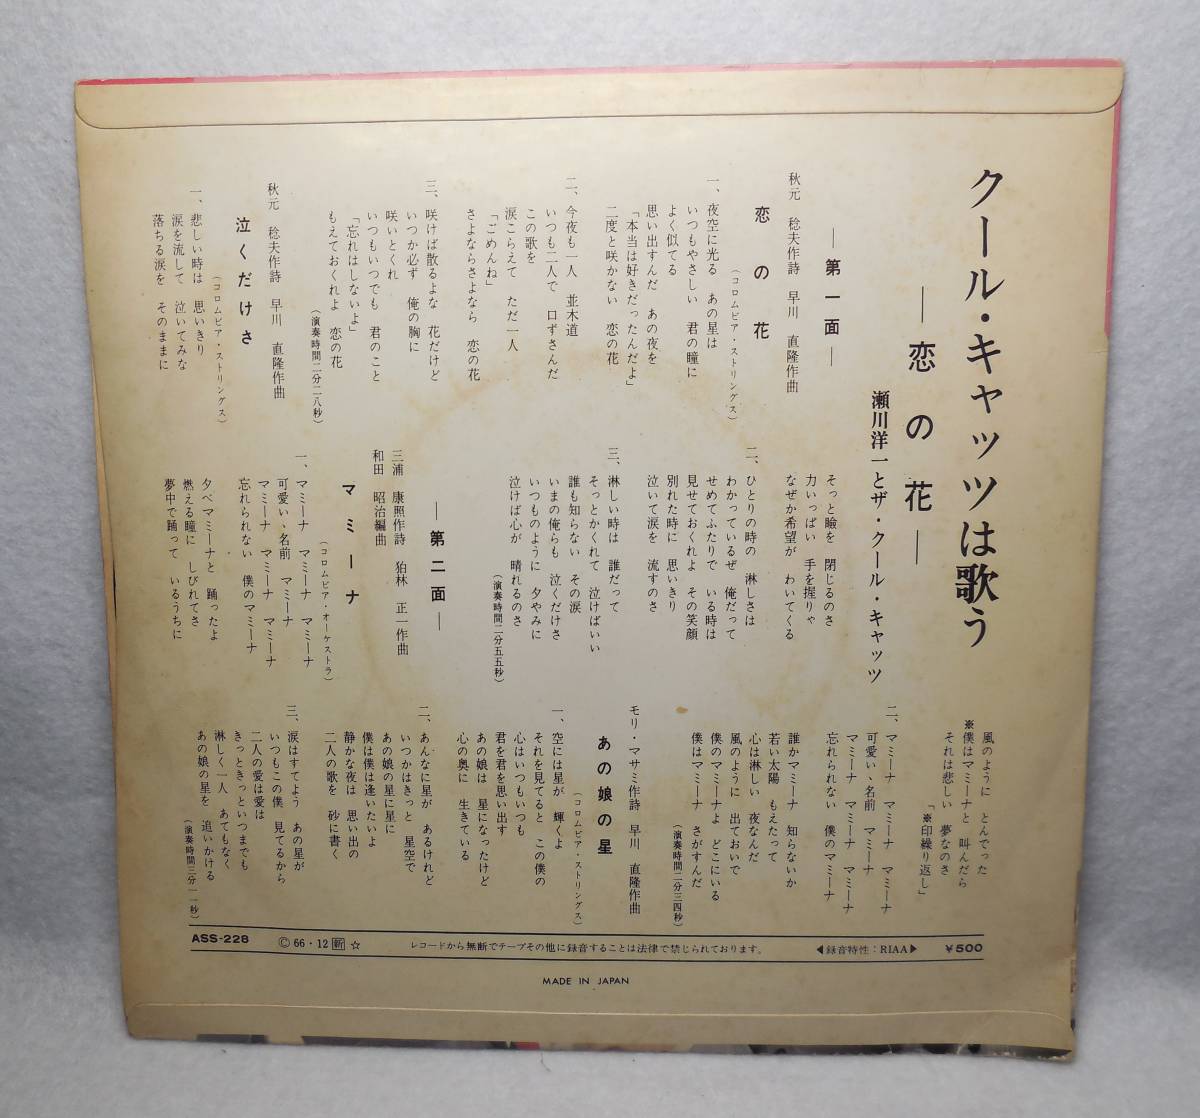 クール・キャッツは歌う
―恋の花―
瀬川洋一とザ・クール・キャッツ
―第一面―
秋元 稔夫作詩 早川 直隆作曲
恋の花
(コロムビア・ストリングス)
一、夜空に光る あの星は
いつもやさしい 君の瞳に
よく似てる
思い出すんだ あの夜を
「本当は好きだったんだよ」
二度と咲かない 恋の花
二、今夜も一人 並木道
いつも二人で 口ずさんだ
この歌を
涙こらえて ただ一人
「ごめんね」
さよならさよなら 恋の花
三、咲けば散るよな 花だけど
いつか必ず 俺の胸に
咲いとくれ
いつもいつでも 君のこと
「忘れはしないよ」
もえておくれよ 恋の花
(演奏時間二分二八秒)
秋元 稔夫作詩 早川 直隆作曲
泣くだけさ
(コロムビア・ストリングス)
一、悲しい時は 思いきり
涙を流して 泣いてみな
落ちる涙を そのままに
そっと瞼を 閉じるのさ
力いっぱい 手を握りゃ
なぜか希望が わいてくる
二、ひとりの時の 淋しさは
わかっているぜ 俺だって
せめてふたりで いる時は
見せておくれよ その笑顔
別れた時に 思いきり
泣いて涙を 流すのさ
三、淋しい時は 誰だって
そっとかくれて 泣けばいい
誰も知らない その涙
いまの俺らも 泣くだけさ
いつものように 夕やみに
泣けば心が 晴れるのさ
(演奏時間二分五五秒)
―第二面―
三浦 康照作詩 狛林 正一作曲
和田 昭治編曲
マミーナ
(コロムビア・オーケストラ)
一、マミーナ マミーナ マミーナ
可愛い、名前 マミーナ
マミーナ マミーナ マミーナ
忘れられない 僕のマミーナ
夕べマミーナと 踊ったよ
燃える瞳に しびれてさ
夢中で踊って いるうちに
風のように とんでった
※僕はマミーナと 叫んだら
それは悲しい 夢なのさ
「※印繰り返し」
二、マミーナ マミーナ マミーナ
可愛い、名前 マミーナ
マミーナ マミーナ マミーナ
忘れられない 僕のマミーナ
誰かマミーナ 知らないか
若い太陽 もえたって
心は淋しい 夜なんだ
風のように 出ておいで
僕のマミーナよ どこにいる
僕はマミーナ さがすんだ
(演奏時間二分三四秒)
モリ・マサミ作詩 早川 直隆作曲
あの娘の星
(コロムビア・ストリングス)
一、空には星が 輝くよ
それを見てると この僕の
心はいつもいつも
君を君を思い出す
あの娘は 星になったけど
心の奥に 生きている
二、あんなに星が あるけれど
いつかはきっと 星空で
あの娘の星に星に
僕は僕は逢いたいよ
静かな夜は 思い出の
二人の歌を 砂に書く
三、涙はすてよう あの星が
いつもこの僕 見てるから
二人の愛は愛は
きっときっといつまでも
淋しく一人 あてもなく
あの娘の星を 追いかける
(演奏時間三分一一秒)
ASS-228 Ⓒ66・12 新 ☆ レコードから無断でテープその他に録音することは法律で禁じられております。 ◀録音特性:RIAA▶ ¥500
MADE IN JAPAN